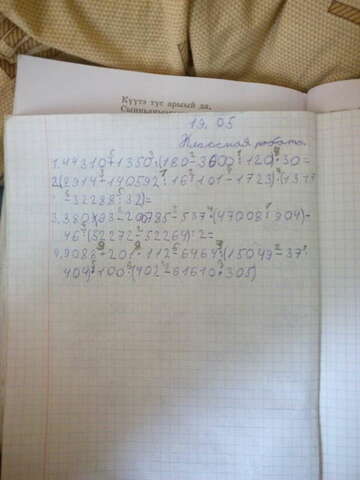 Күүтэ тус арыый да,
19.05
Классная работа.
1.47310+1350:(180-3600:120)·30=
2.(8914+140592:16·101-1723):(1317
-32288:32)=
3.380·(93-206785-537·(47008:904)-
46·(52272-52264):2=
4.9088-201·112-6464:(15049-37·
404)+100·(402-61610:305)